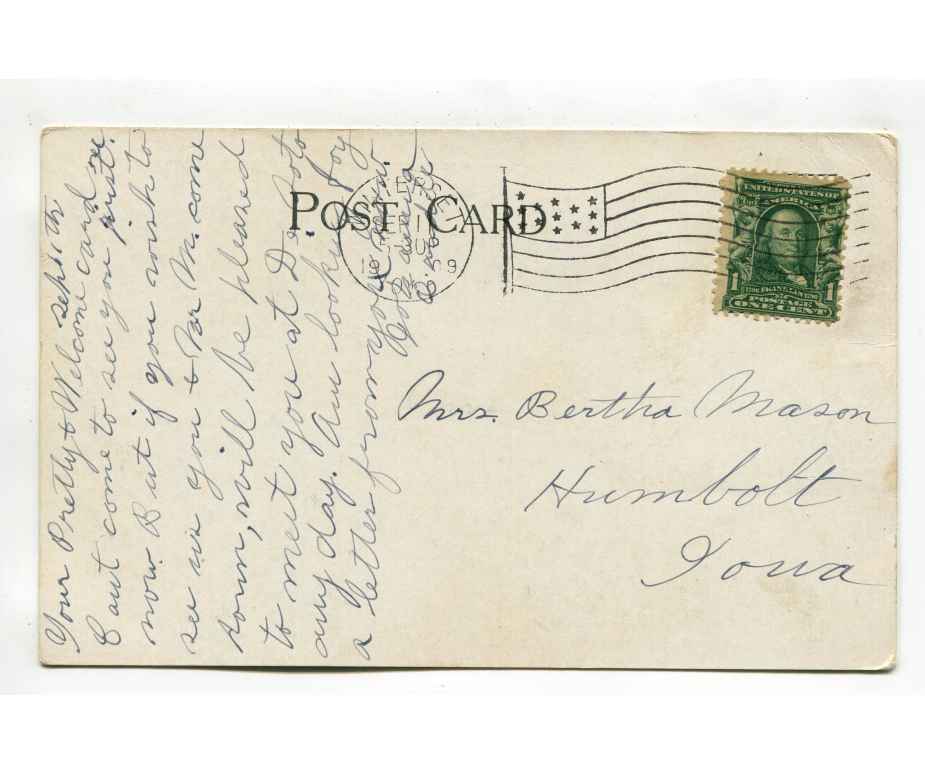 Your Pretty & Welcome card re
sept tr
Cant come to see you just
now But if you wish to
see us you & Par M. come
soon, will be pleased
to meet you at De Soto
any day. Am looking for
a letter from you
POST CARD
UNITED STATES OF
AMERICA
1 1
POSTAGE
ONE CENT
Mrs. Bertha Mason
Humbolt
Iowa